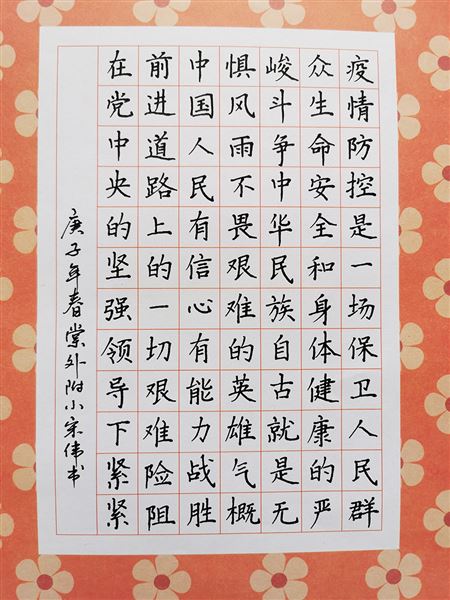 疫情防控是一场保卫人民群
众生命安全和身体健康的严
峻斗争中华民族自古就是无
惧风雨不畏艰难的英雄气概
中国人民有信心有能力战胜
前进道路上的一切艰难险阻
在党中央的坚强领导下紧紧
庚子年春棠外附小宋伟书